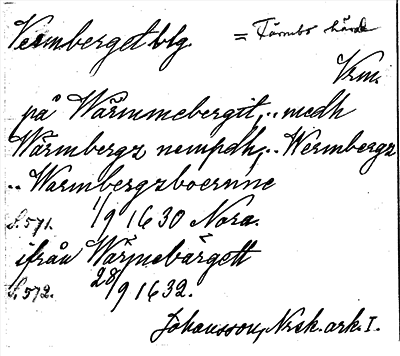 Vermberget blg. = Färnebo härad
Vrm.
på Wärmmebergit, .. medh
Wärmbergz nempdh, .. Wermbergz
.. Warmbergzboernne
s. 571. 1/9 1630 Nora.
ifrån Wärmebärgett
s. 572. 28/9 1632.
Johansson, Norask. ark. I.